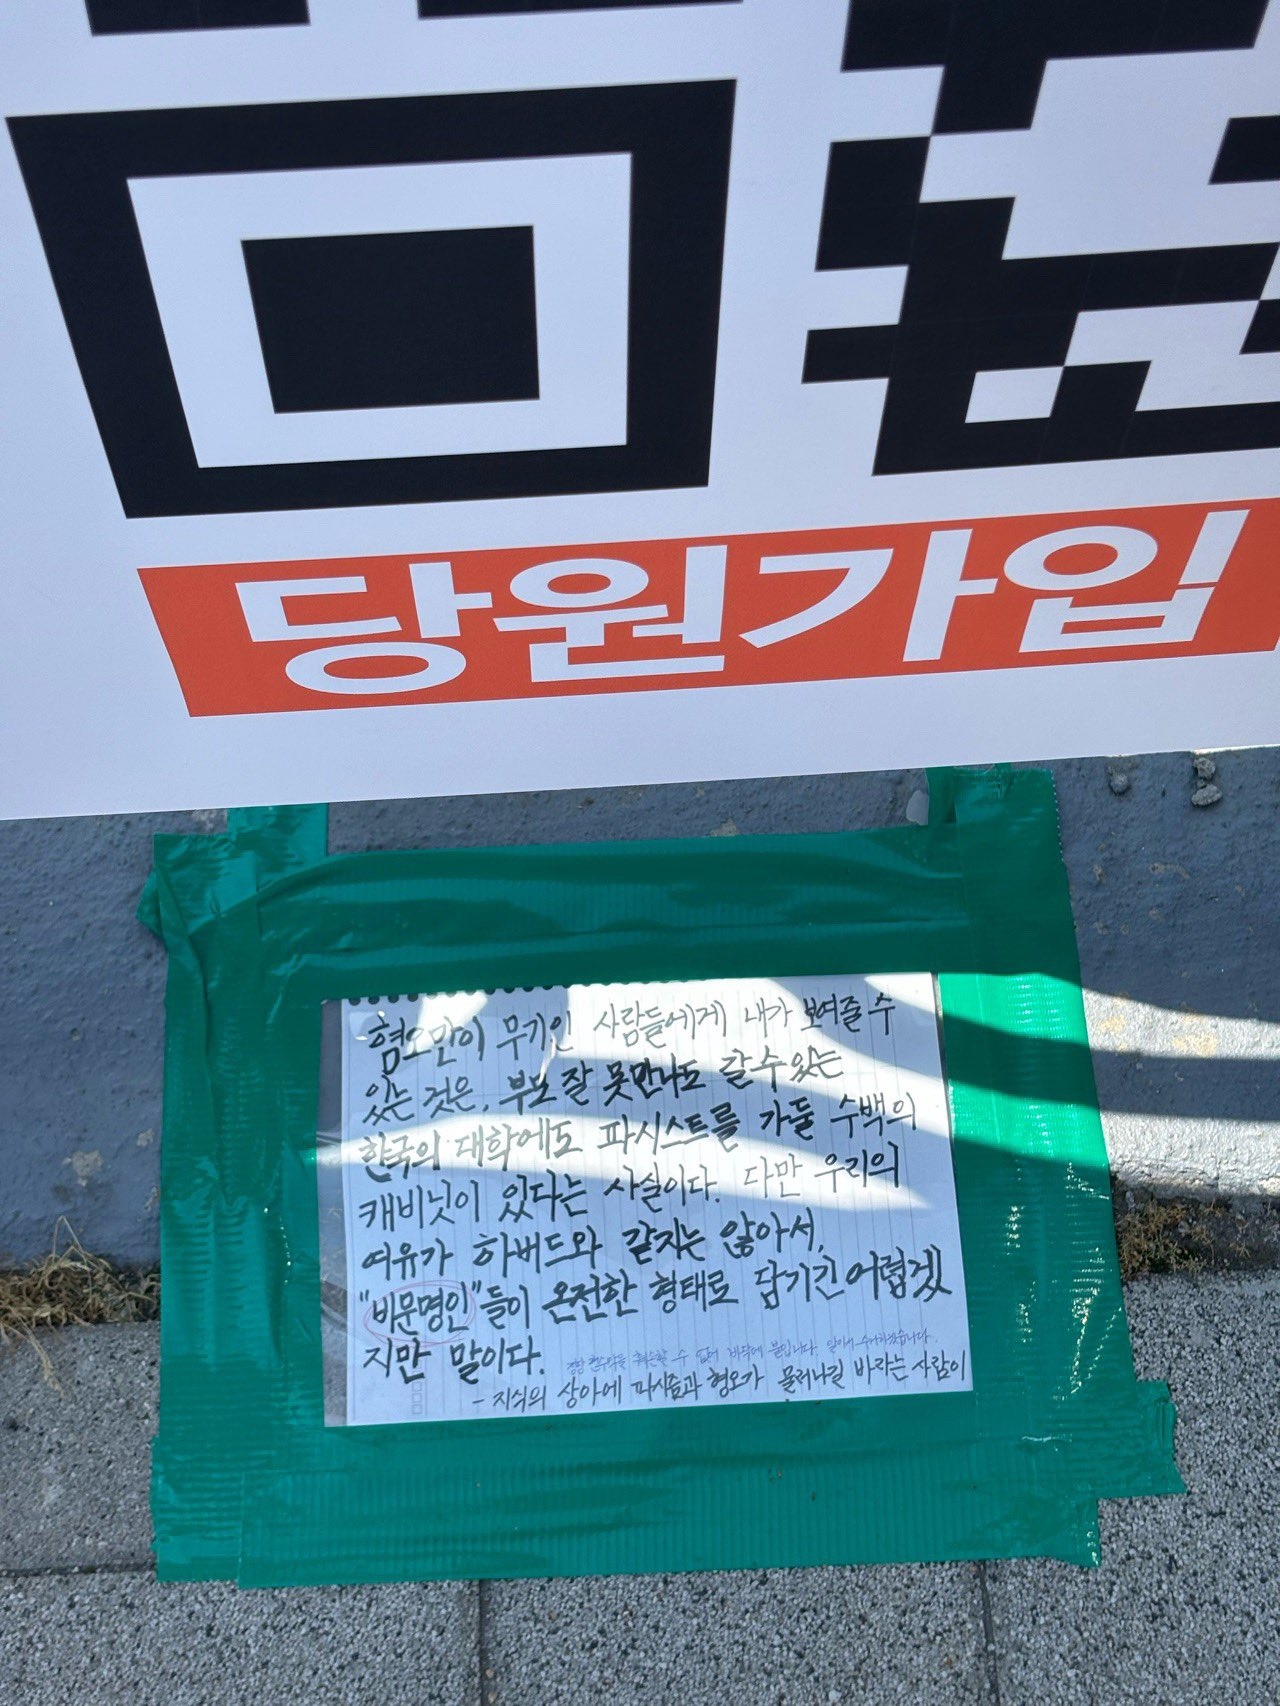 당원가입!
혐오만이 무기인 사람들에게 내가 보여줄 수
있는 것은, 부모 잘 못만나도 갈 수 있는
한국의 대학에도 파시스트를 가둘 수백의
캐비닛이 있다는 사실이다. 다만 우리의
여유가 하버드와 같지는 않아서,
"비문명인"들이 온전한 형태로 담기긴 어렵겠
지만 말이다.
정당 현수막을 훼손할 수 없어 바닥에 붙입니다. 알아서 수거하겠습니다.
- 지식의 상아에 파시즘과 혐오가 물러나길 바라는 사람이